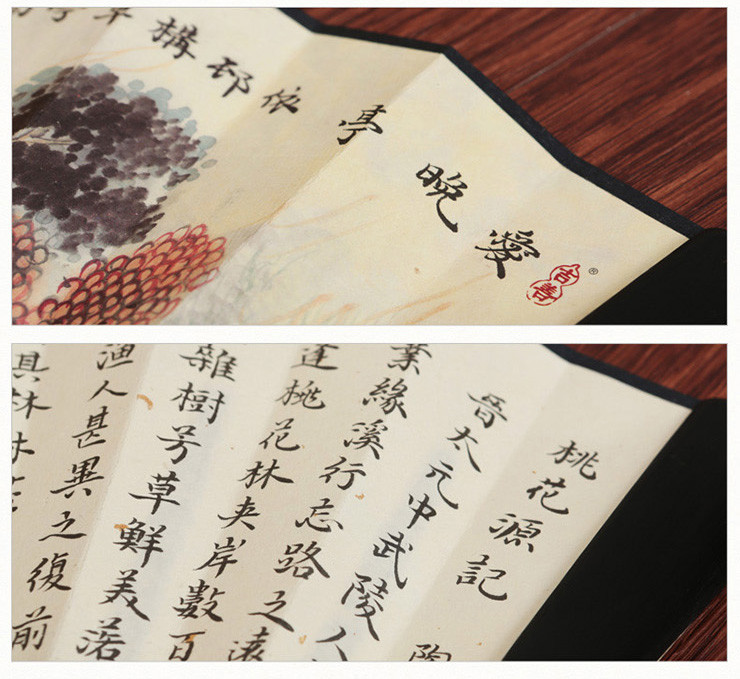 愛晚亭
依邨構草
吉善
桃花源記
晉太元中武陵人
業緣溪行忘路之遠
逢桃花林夾岸數百
雜樹芳草鮮美落
漁人甚異之復前
其林林